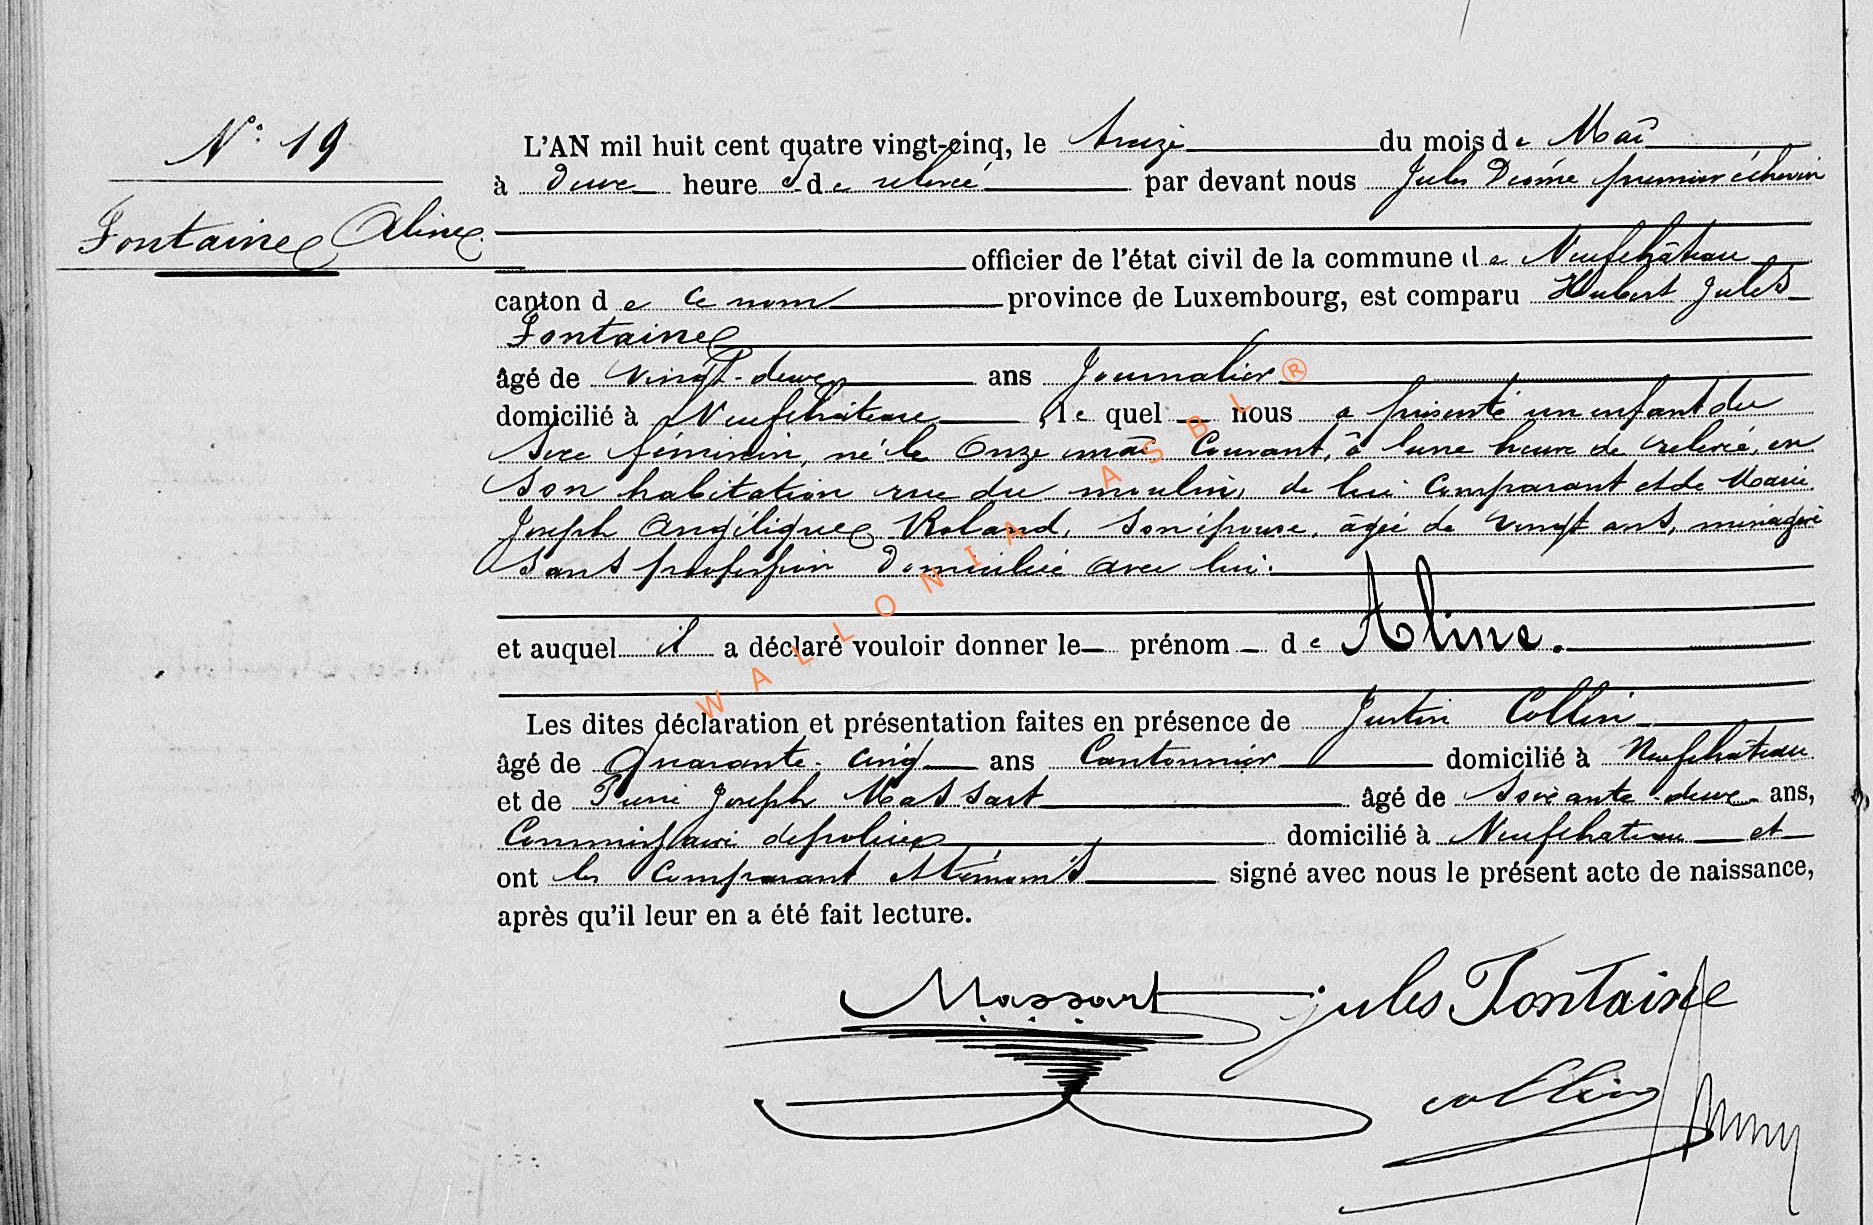 N° 19
Fontaine Aline
L'AN mil huit cent quatre vingt-cinq, le treize du mois de Mai
à deux heures de relevée par devant nous Jules premier échevin
officier de l'état civil de la commune de Neufchâteau
canton de ce nom province de Luxembourg, est comparu Hubert Jules
Fontaine
âgé de vingt-deux ans Journalier
domicilié à Neufchâteau, lequel nous a présenté un enfant du
sexe féminin, né le onze mai courant, à l'une heure de relevée, en
son habitation rue du moulin, de lui comparant et de Marie
Joseph Angélique Roland, son épouse, âgée de vingt ans, ménagère
sans profession domiciliée avec lui.
et auquel il a déclaré vouloir donner le prénom de Aline.
Les dites déclaration et présentation faites en présence de Justin Collin
âgé de Quarante-cinq ans Cantonnier domicilié à Neufchâteau
et de Pierre Joseph Massart âgé de soixante-deux ans,
Commissaire de police domicilié à Neufchateau et
ont les comparant et témoins signé avec nous le présent acte de naissance,
après qu'il leur en a été fait lecture.
Massart Jules Fontaine
Collin
WALLONIA ASBL®